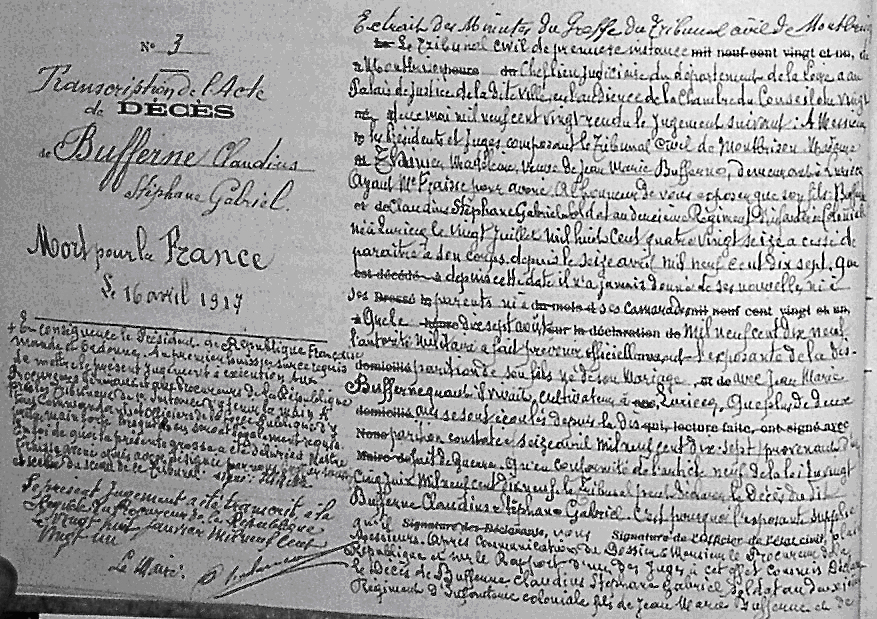 N° 3
Transcription de l'Acte
de DÉCÈS
de Bufferne Claudius
Stéphane Gabriel.
Mort pour la France
Le 16 avril 1917
+ En conséquence le Président de République Française
mande et ordonne, à premier huissier sur ce requis
de mettre le présent Jugement à exécution aux
Procureurs Généraux et aux Procureurs de la République
près les Tribunaux de 1re Instance d'y tenir la main à
tous Commandants et Officiers de la force Publique d'y
prêter main forte lorsqu'ils en seront légalement requis.
En foi de quoi la présente grosse a été délivrée
et scellée du sceau de ce Tribunal.
Le présent Jugement a été transcrit à la
Requête du Procureur de la République
le vingt huit janvier mil neuf cent
vingt un
Le Maire:
Extrait des Minutes du Greffe du Tribunal civil de Montbrison
Le Tribunal civil de première instance mil neuf cent vingt et un, de
Montbrison heure du Chef lieu judiciaire du département de la Loire a au
Palais de justice de la dite ville, en l'audience de la Chambre du Conseil du vingt
deux mai mil neuf cent vingt rendu le Jugement suivant: A Messieurs
les Présidents et Juges composant le Tribunal Civil de Montbrison
Madeleine, veuve de Jean Marie Bufferne, demeurant à Luriecq
Ayant Me Fraisse pour avoué A l'honneur de vous exposer que son fils: Bufferne
Claudius Stéphane Gabriel soldat au deuxième Régiment d'Infanterie Coloniale
né à Luriecq le vingt Juillet mil huit cent quatre vingt seize a cessé de
paraître à son corps, depuis le seize avril mil neuf cent dix sept. Que
est décédé depuis cette date il n'a jamais donné de ses nouvelles ni à
ses Dressé parents ni à du mois d ses camarades mil neuf cent vingt et un,
Que le dix sept août sur la déclaration de Mil neuf cent dix neuf
l'autorité Militaire a fait prévenir officiellement l'exposante de la dis-
domicilié parition de son fils né de son Mariage, et de avec Jean Marie
Bufferne quand vivait, cultivateur à Luriecq, Que plus de deux
domicilié ans se sont écoulés depuis la dis qui, lecture faite, ont signé avec
Nous parition constatée seize avril mil neuf cent dix-sept provenant d'un
Maire de fait de Guerre. Qu'en conformité de l'article neuf de la loi du vingt
Cinq Juin Mil neuf cent dix neuf le Tribunal peut déclarer le Décès du dit
Bufferne Claudius Stéphane Gabriel. C'est pourquoi l'exposante supplie
qu'il Signature des Déclarants, vous Signature de l'Officier de l'état civil, plaise
Messieurs. Après Communication du Dossier à Monsieur le Procureur de la
République et sur le Rapport d'un des Juges à cet effet commis Déclarer
le Décès de Bufferne Claudius Stéphane Gabriel Soldat au deuxième
Régiment d'Infanterie coloniale fils de Jean Marie Bufferne et de